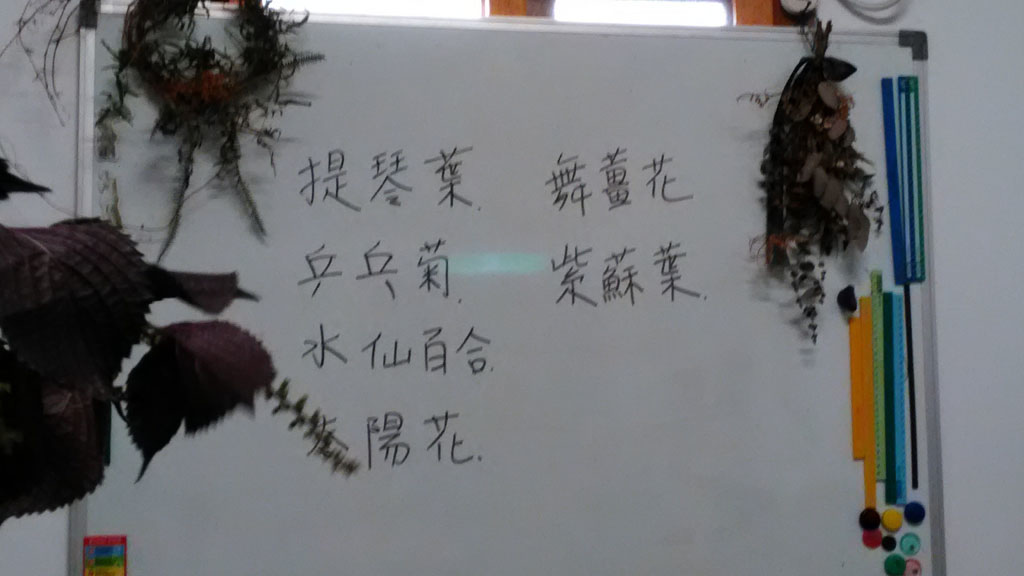 提琴葉.
乒乓菊.
水仙百合.
紫陽花.
舞薑花
紫蘇葉.